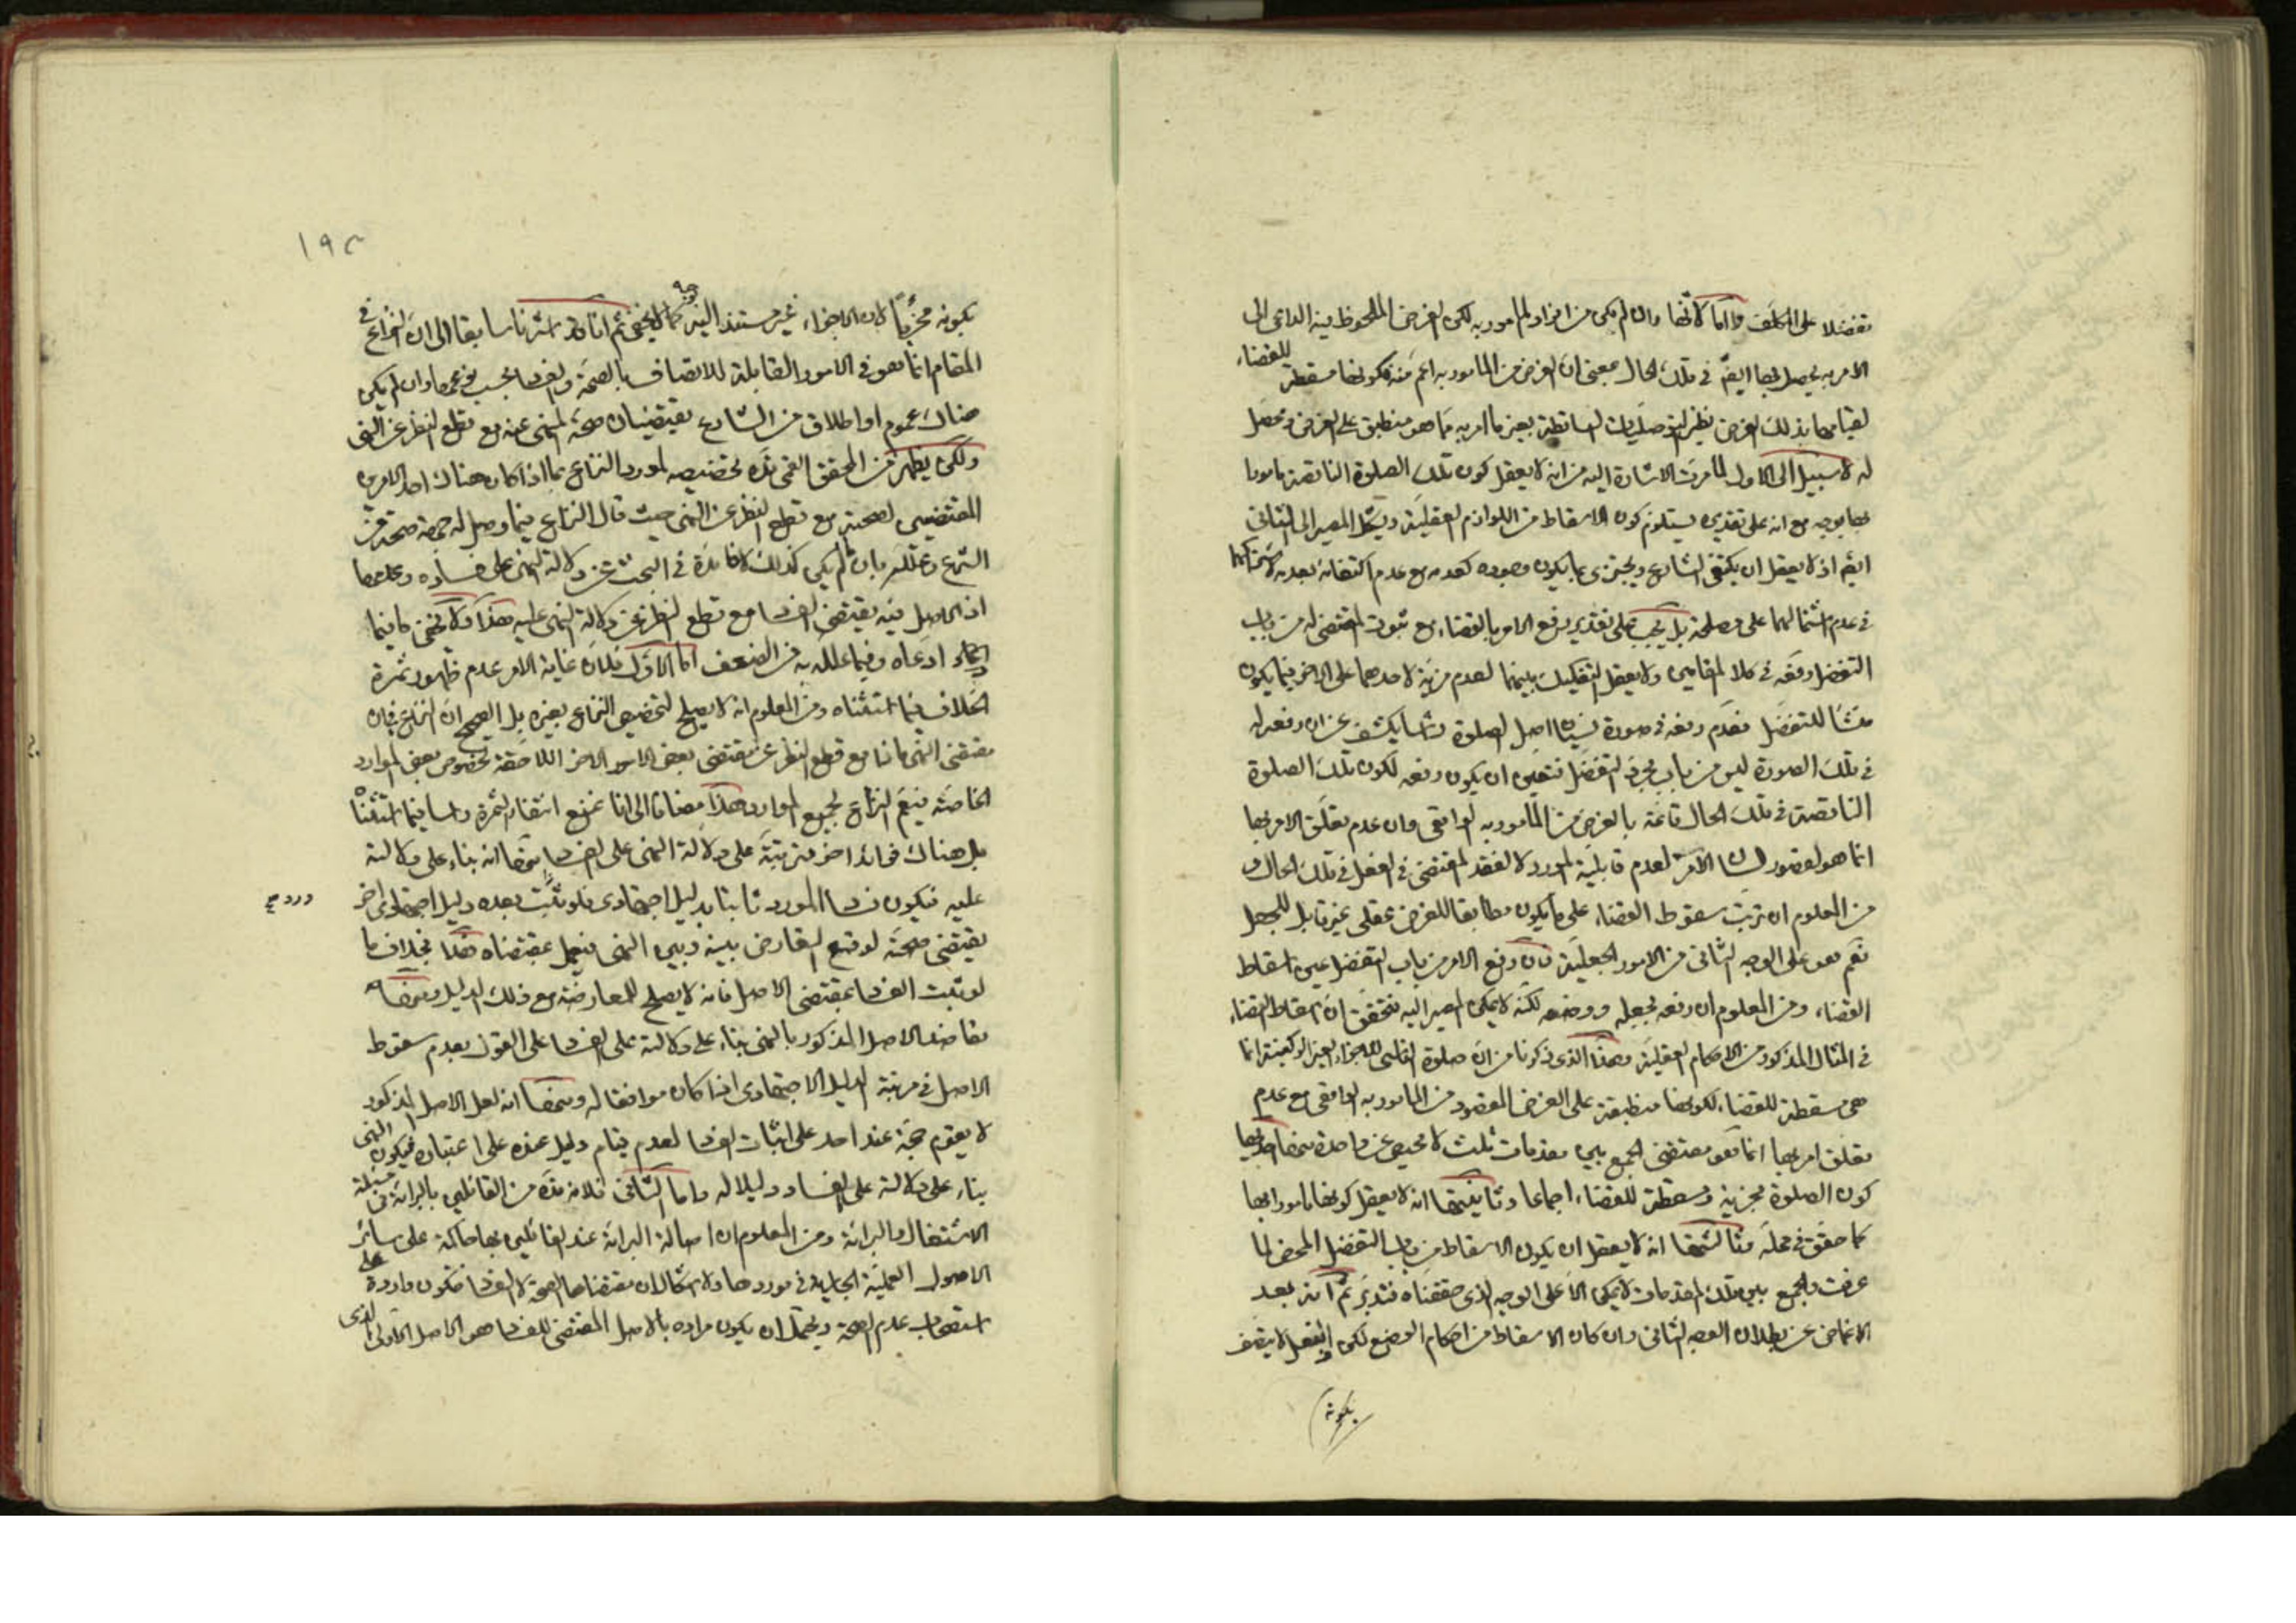 تفضلا على المكلف واما لانها وان لم يكن من افراد المامور به لكن الغرض الملحوظ فيه الداعي الى
الامر به يحصل بها ايضا في تلك الحال بمعنى ان الغرض من المامور به اعم منه فكونها مسقطة للقضاء
لقيامها بذلك الغرض نظير التوصليات الساقطة بغير ما امر به مما هو منطبق على الغرض ومحصل
له لا سبيل الى الاول لما مرت الاشارة اليه من انه لا يعقل كون تلك الصلوة الناقصة مامورا
بها بوجه مع انه على تقديره يستلزم كون الاسقاط من اللوازم العقلية ويشكل المصير الى الثاني
ايضا اذ لا يعقل ان يكتفي الشارع ويجتزي بما يكون وجوده كعدمه مع عدم اكتفائه بعدمه لاشتراكهما
في عدم اشتمالهما على مصلحة بل يجب على تقدير رفع الامر بالقضاء مع ثبوت المقتضي له من باب
التفضل رفعه في كلا المقامين ولا يعقل التفكيك بينهما لعدم مزية لاحدهما على الاخر فيما يكون
منشأ للتفضل فعدم رفعه في صورة نسيان اصل الصلوة راسا يكشف عن ان رفعه له
في تلك الصورة ليس من باب مجرد التفضل فتعين ان يكون رفعه لكون تلك الصلوة
الناقصة في تلك الحال قائمة بالغرض من المامور به الواقعي وان عدم تعلق الامر بها
انما هو لقصور لسان الامر لعدم قابلية المورد لا لفقد المقتضي في الفعل في تلك الحال و
من المعلوم ان ترتب سقوط القضاء على ما يكون مطابقا للغرض عقلي غير قابل للجعل
نعم هو على الوجه الثاني من الامور الجعلية فان رفع الامر من باب التفضل عين اسقاط
القضاء ومن المعلوم ان رفعه بجعله ووضعه لكنه لا يمكن المصير اليه فتحقق ان اسقاط القضاء
في المثال المذكور من الاحكام العقلية وهذا الذي ذكرنا من ان صلوة الناسي للاجزاء الغير الركنية انما
هي مسقطة للقضاء لكونها منطبقة على الغرض المقصود من المامور به الواقعي مع عدم
تعلق امر بها انما هو مقتضى الجمع بين مقدمات ثلث لا محيص عن واحدة منها احديها
كون الصلوة مجزية ومسقطة للقضاء اجماعا وثانيتها انه لا يعقل كونها مامورا بها
كما حقق في محله وثالثتها انه لا يعقل ان يكون الاسقاط من باب التفضل المحض لما
عرفت والجمع بين تلك المقدمات لا يمكن الا على الوجه الذي حققناه فتدبر ثم انه بعد
الاغماض عن بطلان الوجه الثاني وان كان الاسقاط من احكام الوضع لكن الفعل لا يتصف
بكونه
١٩٢
بكونه مجزيا لان الاجزاء غير مستند اليه كما لا يخفى ثم انا قد اشرنا سابقا الى ان النزاع في
المقام انما هو في الامور القابلة للاتصاف بالصحة والفساد بحسب نوعها وان لم يكن
هناك عموم او اطلاق من الشارع يقتضيان صحة المنهي عنه مع قطع النظر عن النهي
ولكن يظهر من المحقق القمي قده تخصيصه لمورد النزاع بما اذا كان هناك احد الامرين
المقتضيين لصحته مع قطع النظر عن النهي حيث قال النزاع فيما وصل له جهة صحة من
الشرع وعلله بان لم يكن كذلك لا فائدة في البحث عن دلالة النهي على فساده وعدمها
اذ الاصل فيه يقتضي الفساد مع قطع النظر عن دلالة النهي عليه هذا ولا يخفى ما فيما
ادعاه وفيما علله به من الضعف اما الاول فلان غاية الامر عدم ظهور ثمرة
الخلاف فيما استثناه ومن المعلوم انه لا يصلح لتخصيص النزاع بغيره بل الصحيح ان النزاع في ان
مقتضى النهي ماذا مع قطع النظر عن مقتضى بعض الامور الاخر اللاحقة لخصوص بعض الموارد
الخاصة فيعم النزاع لجميع الموارد هذا مضافا الى انا نمنع انتفاء الثمرة راسا فيما استثناه
بل هناك فوائد اخر مترتبة على دلالة النهي على الفساد منها انه بناء على دلالته
عليه فيكون فساد المورد ثابتا بدليل اجتهادي فلو ثبت بعده دليل اجتهادي اخر
ورود
يقتضي صحته لوقع التعارض بينه وبين النهي فيعمل بمقتضاه هذا بخلاف ما
لو ثبت الفساد بمقتضى الاصل فانه لا يصلح للمعارضة مع ذلك الدليل ومنها
تعاضد الاصل المذكور بالنهي بناء على دلالته على الفساد على القول بعدم سقوط
الاصل في مرتبة الدليل الاجتهادي اذا كان موافقا له ومنها انه لعل الاصل المذكور
لا يقوم حجة عند احد على اثبات الفساد لعدم قيام دليل عنده على اعتباره فيكون النهي
بناء على دلالته على الفساد دليلا له واما الثاني فلانه قده من القائلين بالبرائة في مسئلة
الاشتغال والبرائة ومن المعلوم ان اصالة البرائة عند القائلين بها حاكمة على سائر
الاصول العملية الجارية في موردها ولا اشكال ان مقتضاها الصحة لا الفساد فتكون واردة على
استصحاب عدم الصحة ويحتمل ان يكون مراده بالاصل المقتضي للفساد هو الاصل الاولي الذي